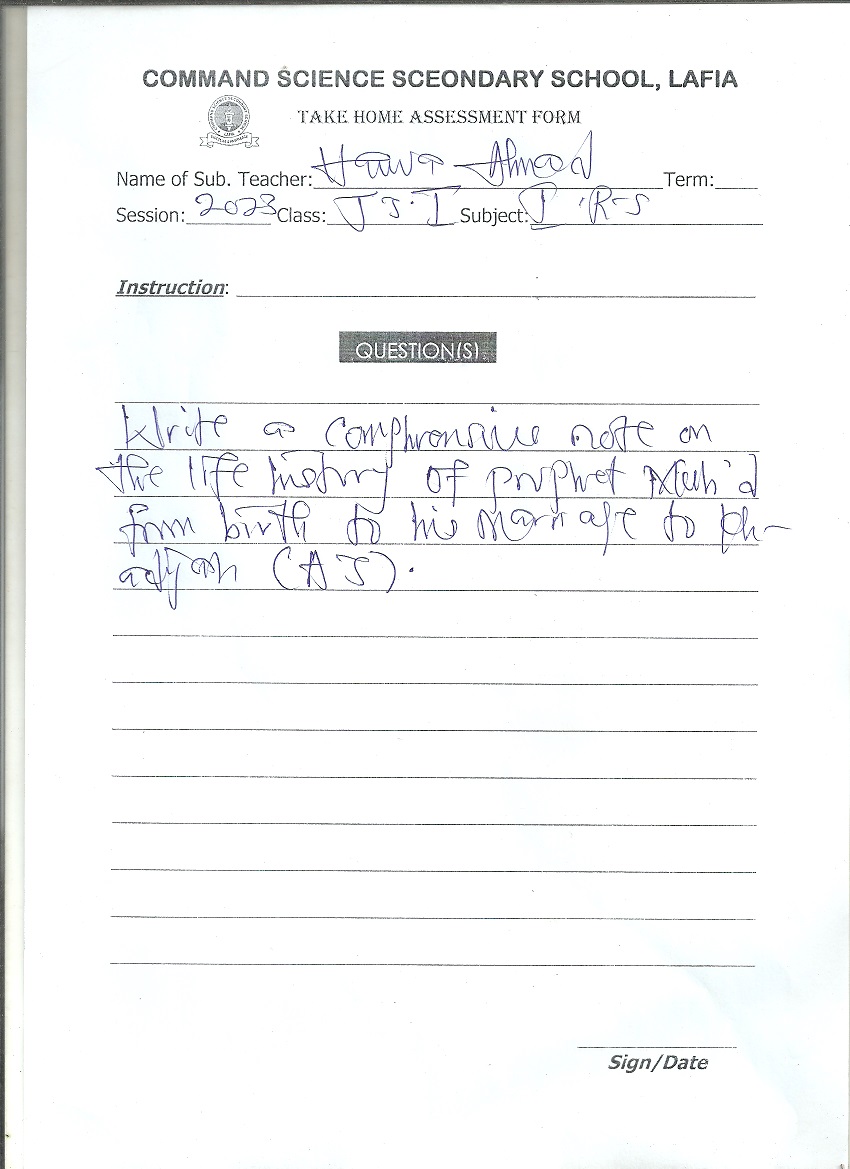 COMMAND SCIENCE SCEONDARY SCHOOL, LAFIA
TAKE HOME ASSESSMENT FORM
Name of Sub. Teacher: Hauwa Ahmed Term:
Session: 2023 Class: JS.I Subject: I.R.S
Instruction:
QUESTION(S)
Write a comphrensive note on
the life history of prophet Muh'd
from birth to his marriage to Kh-
adijah (AS).
Sign/Date